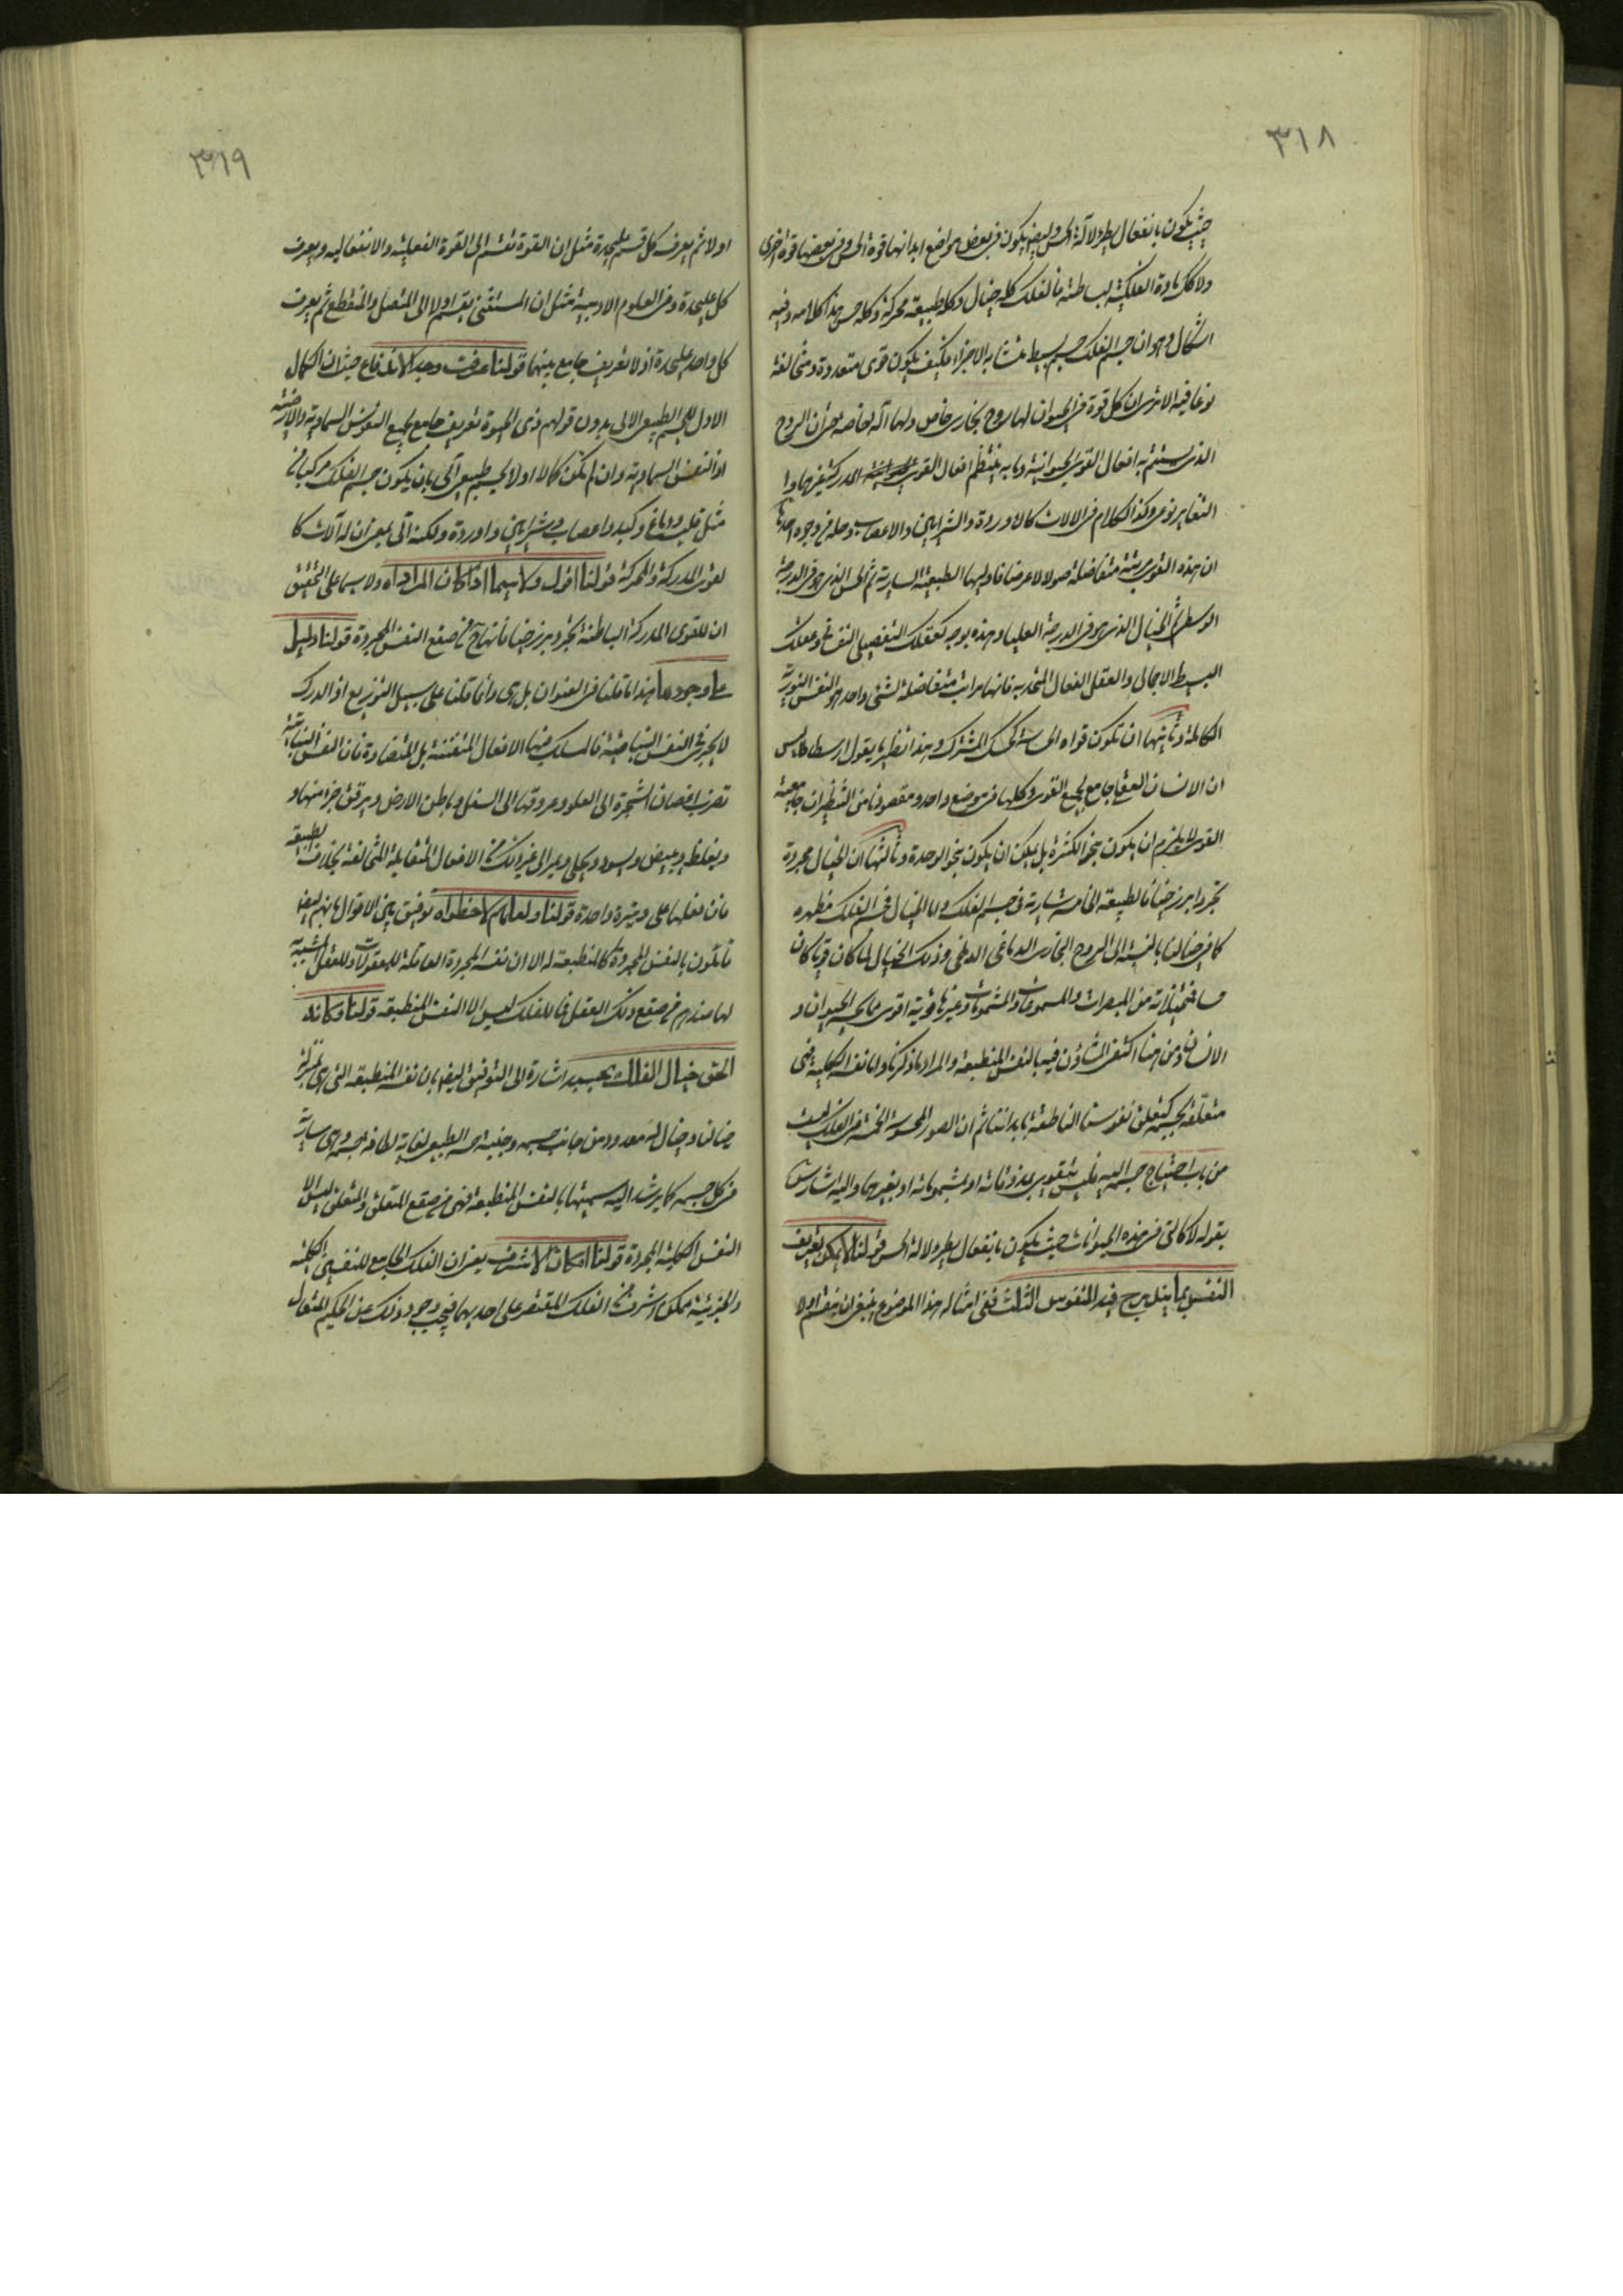 ٣١٨
حيث يكون بانفعال يطرء لآلة الحس وليس يكون في بعض مواضع ابدانها قوة الحس وفي بعضها قوة اخرى
ولا كك مادة الفلكية لبساطته فالفلك كله خيال وكله طبيعة محركة وكله حس هذا كلامه وفيه
اشكال وهو ان جسم الفلك جسم بسيط متشابه الاجزاء فكيف يكون قوى متعددة ومتخالفة
نوعا فيه الا ترى ان كل قوة في الحيوان لها روح بخارى خاص ولها آلة خاصة حتى ان الروح
الذى يستتم به افعال القوى الحيوانية وما به ينتظم افعال القوى المدركة
التغاير نوعى وكذا الكلام في الآلات كالاوردة والشرايين والاعصاب وحله من وجوه احدها
ان هذه القوى مرتبة متفاضلة طولا لا عرضا فاوليها الطبيعة السارية ثم الحس الذى هو في الدرجة
الوسطى ثم الخيال الذى هو في الدرجة العليا وهذه بوجه كعقلك التفصيلى النفسانى وعقلك
البسيط الاجمالى والعقل الفعال المتحد به فانها مراتب متفاضلة لشئ واحد هو النفس النورية
الكاملة وثانيها ان تكون قواه الحساسة كالحس المشترك وهذا نظير ما يقول ارسطاطاليس
ان الانسان العقلى جامع لجميع القوى وكلها في موضع واحد ومقصودنا من التنظير ان جامعية
القوى لا يلزم ان يكون بنحو الكثرة بل يمكن ان يكون بنحو الوحدة وثالثها ان الخيال مجردة
تجردا برزخيا فالطبيعة الخامسة سارية في جسم الفلك واما الخيال فجسم الفلك مظهره
كما في خيالنا بالنسبة الى الروح البخارى الدماغى وذلك الخيال لما كان قويا كان
ما في ذاته من المبصرات والمسموعات والمشمومات وغيرها قوية اقوى مما في الحيوان و
الانسان ومن هنا اكتفى المشاؤن فيه بالنفس المنطبعة والمراد ما ذكرنا واما نفسه الكلية فهى
متعلقة بجسمه كتعلق نفوسنا الناطقة بابداننا ثم ان الصور المحسوسة الخمسة في الفلك ليست
من باب احتياج جسم اليه فليس يتقوى بمذوقاته او بمشموماته او بغيرها واليه اشار
بقوله لا كالتى في هذه الحيوانات حيث يكون بانفعال يطرء لآلة الحس قولنا لا يمكن تعريف
النفس بما يندرج فيه النفوس الثلث ففى امثال هذا الموضوع ينبغى ان يقسم اولا
٣١٩
اولا ثم يعرف كل قسم عليحدة مثل ان القوة تقسم الى القوة الفعلية والانفعالية ويعرف
كل عليحدة وفي العلوم الادبية مثل ان المستثنى يقسم اولا الى المتصل والمنقطع ثم يعرف
كل واحد عليحدة اذ لا تعريف جامع بينهما قولنا عرفت وجه الاندفاع حيث ان الكمال
الاول لجسم طبيعى آلى بدون قولهم ذى الحيوة تعريف جامع لجميع النفوس السماوية والارضية
اذ النفس السماوية وان لم تكن كمالا اولا لجسم طبيعى آلى بان يكون جسم الفلك مركبا من
مثل قلب ودماغ وكبد واعصاب وشرايين واوردة ولكنه آلى بمعنى ان له آلات كا
لقوى المدركة والمحركة قولنا اقول ولا سيما اذا كان المراد اه ولا سيما على التحقيق
ان للقوى المدركة الباطنة تجرد برزخيا فانها ح من صقع النفس المجردة قولنا دليل
على وجودها هذا ما قلنا في العنوان بل ترى وانما قلنا على سبيل التوزيع اذ الدرك
لا يجرى في النفس النباتية فالمسلك فيها الافعال المتفننة بل المتضادة فان النفس النباتية
تصرف اغصان الشجرة الى العلو وعروقها الى السفل وباطن الارض ويرقق جزء منها و
ويغلظ ويبيض ويسود ويحلى ويمر الى غير ذلك من الافعال المتقابلة المتخالفة بخلاف الطبيعة
فان فعلها على وتيرة واحدة قولنا ولعلهم لاحظوا اه توفيق بين الاقوال بانهم ايضا
قائلون بالنفس المجردة كالمنطبعة له الا ان نفسه المجردة العاقلة للمعقولات وللعقل الشبيه
لها عندهم من صقع ذلك العقل فما للفلك ليس الا النفس المنطبعة قولنا وكانه
الحق خيال الفلك بحسبه اشارة الى التوفيق ايضا بان نفسه المنطبعة التى هى بمنزلة
خيالنا وخياله معدود من جانب جسمه وجنبة جسمه الطبيعى لغاية لطافة جسمه وهى سارية
في كل جسمه كما يرشد اليه تسميتها بالنفس المنطبعة فهى من صقع المتعلق والمتعلق ليس الا
النفس الكلية المجردة قولنا امكان الاشرف يعنى ان الفلك الجامع للنفسين الكلية
والجزئية ممكن اشرف من الفلك المقتصر على احديهما فيجب وجود ذلك عن الحكيم المتعال